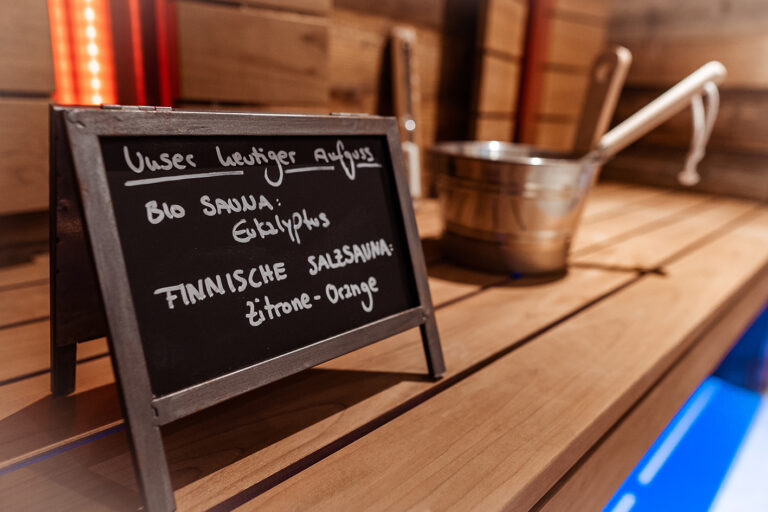 Unser heutiger Aufguss
BIO SAUNA:
Eukalyptus
FINNISCHE SALZSAUNA:
Zitrone-Orange